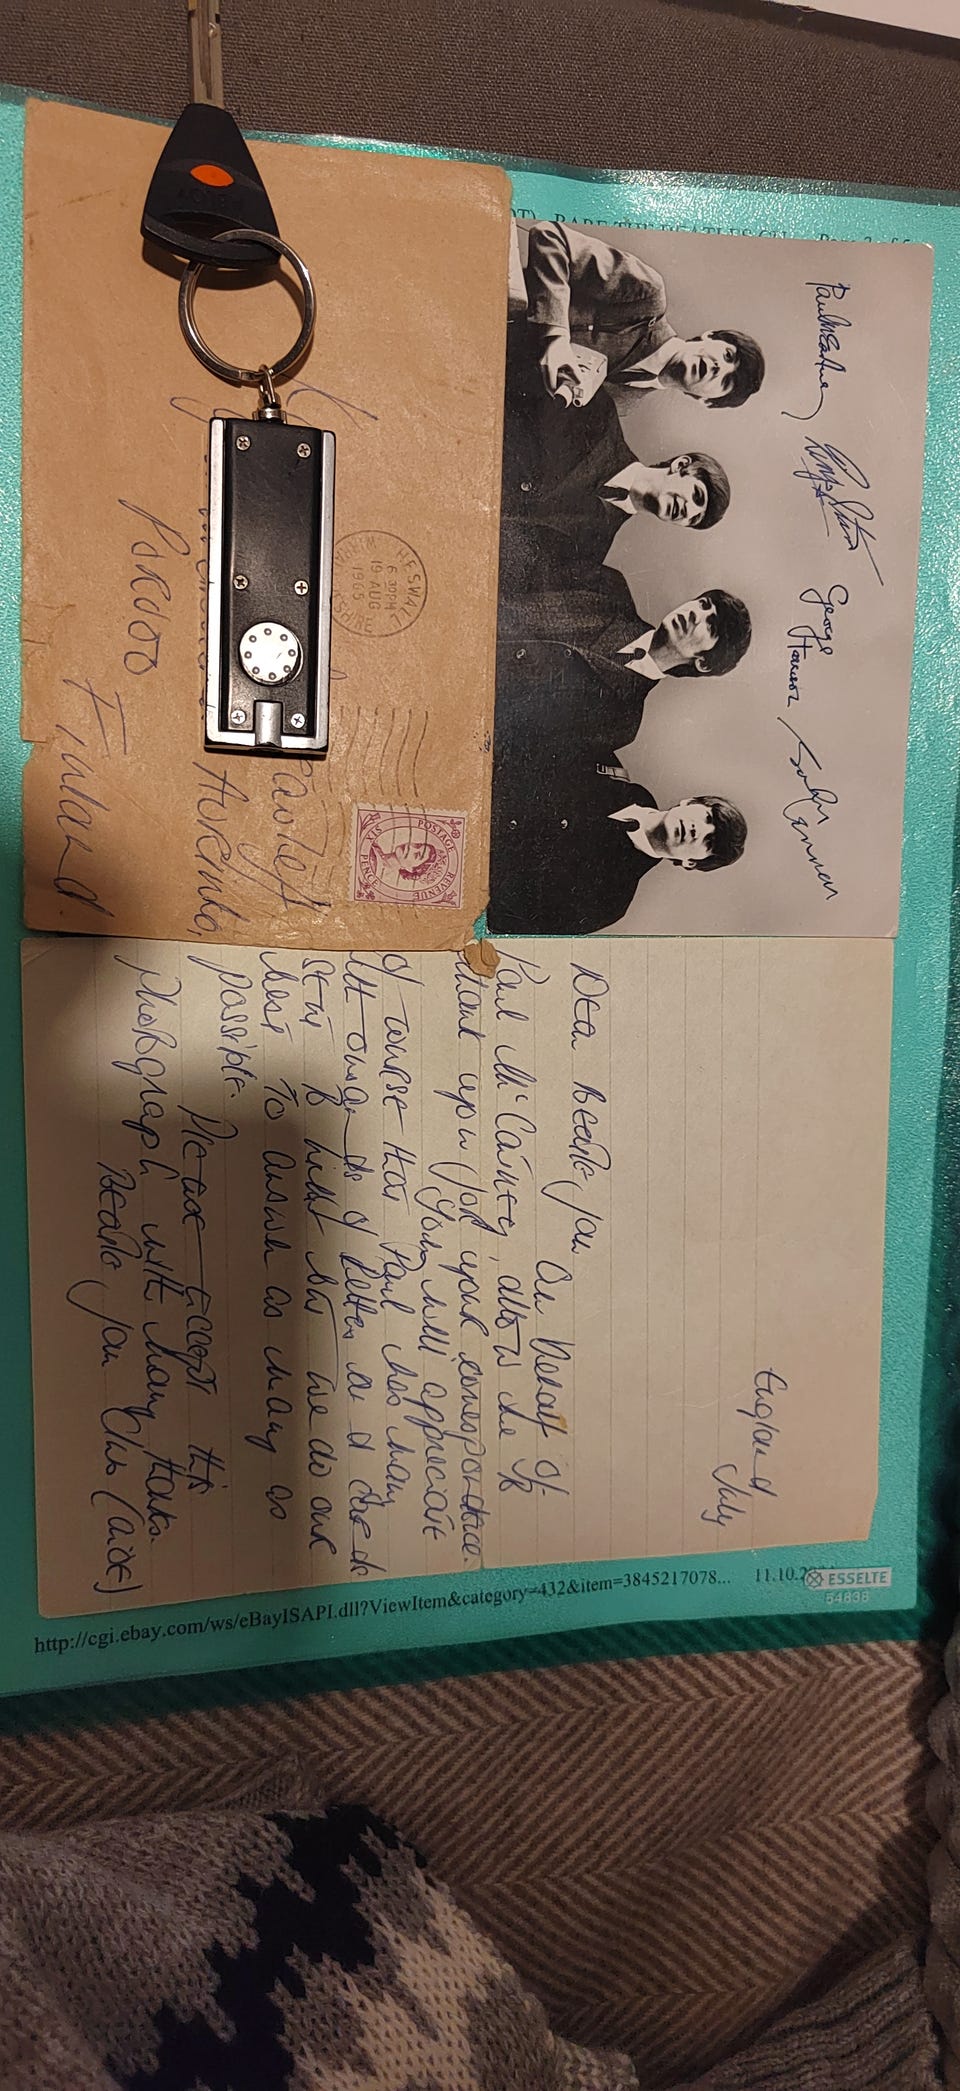 Paul McCartney
Ringo Starr
George
Harrison
John Lennon
HESWALL
6 30PM
19 AUG
1965
WIRRAL CHESHIRE
POSTAGE
REVENUE
SIX
PENCE
Avernto,
Porvoo Finland
England
July
Dear Beatle fan On behalf of
Paul McCartney, allow me to
thank you for your correspondence.
You will appreciate
of course that Paul has many
thousands of letters and cards
sent to him but we do our
best to answer as many as
possible.
Please accept this
photograph with many thanks.
Beatle fan Club (aide)
RARE THE BEATLES
http://cgi.ebay.com/ws/eBayISAPI.dll?ViewItem&category=432&item=3845217078...
11.10.2
ESSELTE
54838